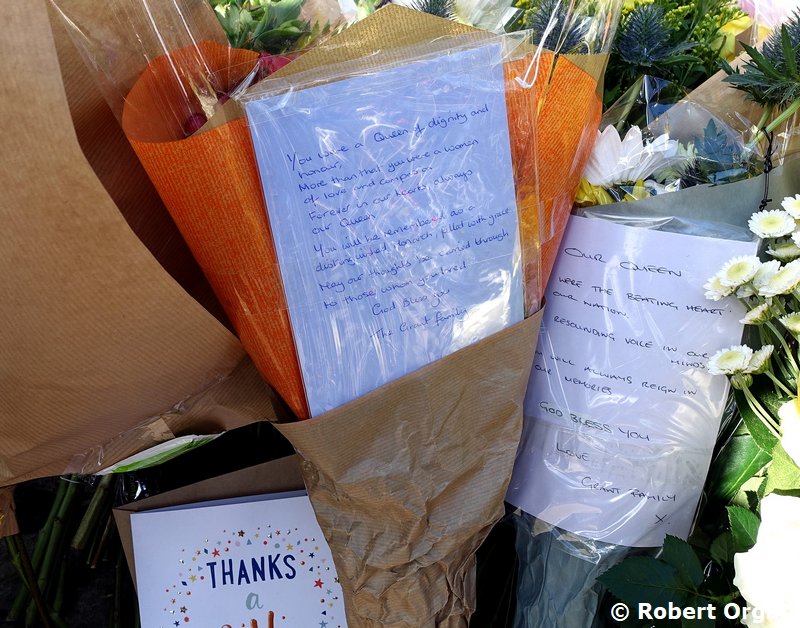 You were a Queen of dignity and
honour,
More than that you were a women
of love and compassion
Forever in our hearts, always
our Queen.
You will be remembered as a
distinguished Monarch, filled with grace
May our thoughts be carried through
to those whom grieved
God Bless you
The Grant Family
OUR QUEEN
WERE THE BEATING HEART.
OUR NATION.
RESOUNDING VOICE IN OUR
MINDS.
WILL ALWAYS REIGN IN
OUR MEMORIES
GOD BLESS YOU
LOVE
GRANT FAMILY
X.
THANKS
a
© Robert Org